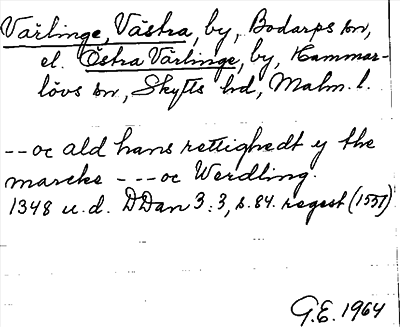 Värlinge, Västra, by, Bodarps sn,
el. Östra Värlinge, by, Hammar-
lövs sn, Skytts hd, Malm. l.
-- oc ald hans rettighedt y the
marcke - -- oc Werdling.
1348 u.d. DDan 3:3, s. 84. regest (1551)
G.E. 1964